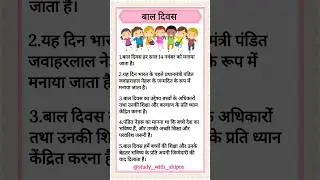 बाल दिवस
1.बाल दिवस हर साल 14 नवंबर को मनाया
जाता है।
2.यह दिन भारत के पहले प्रधानमंत्री पंडित
जवाहरलाल नेहरू के जन्मदिन के रूप में
मनाया जाता है।
3.बाल दिवस का उद्देश्य बच्चों के अधिकारों
तथा उनकी शिक्षा और कल्याण के प्रति ध्यान
केंद्रित करना है।
4.पंडित नेहरू का मानना था कि बच्चे देश का
भविष्य हैं, और उनकी अच्छी शिक्षा और
परवरिश जरूरी है।
5.बाल दिवस हमें बच्चों की शिक्षा और उनके
बेहतर भविष्य के प्रति अपनी जिम्मेदारी की
याद दिलाता है।
2.यह दिन
जवाहरला
3.बाल दि
तथा उनकी
केंद्रित कर